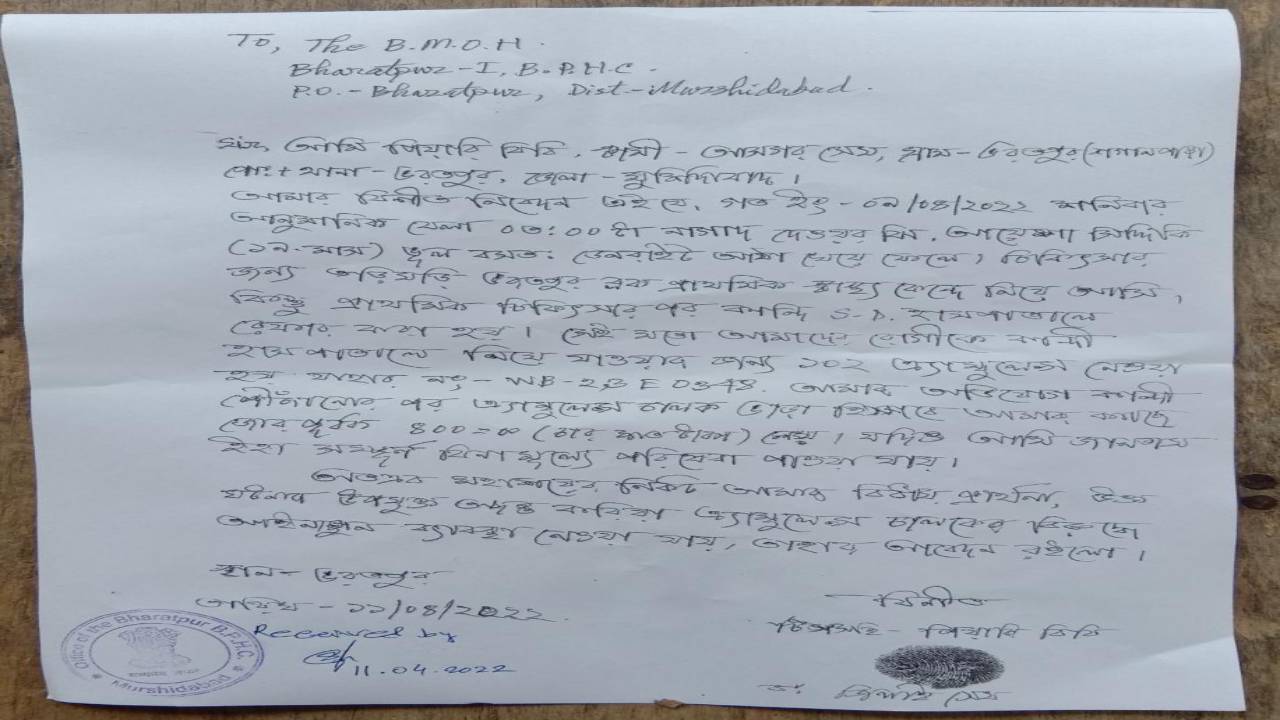 To, The B.M.O.H.
Bharatpur-I, B.P.H.C.
P.O.-Bharatpur, Dist-Murshidabad.
Sir, আমি পিয়ারি বিবি, স্বামী - আসগর সেখ, গ্রাম - ভরতপুর
পোঃ + থানা - ভরতপুর, জেলা - মুর্শিদাবাদ।
আমার বিনীত নিবেদন এই যে, গত ইং - ০৯/০৪/২০২২ শনিবার
আনুমানিক বেলা ০৩:০০টা নাগাদ আয়েশা সিদ্দিকি
(১৯-মাস) ভুল বসতঃ খেয়ে ফেলে। চিকিৎসার
জন্য তড়িঘড়ি ভরতপুর ব্লক প্রাথমিক স্বাস্থ্য কেন্দ্রে নিয়ে আসি,
কিন্তু প্রাথমিক চিকিৎসার পর কান্দি S.D. হাসপাতালে
রেফার করা হয়। সেই মতো আমাদের রোগীকে কান্দী
হাসপাতালে নিয়ে যাওয়ার জন্য ১০২ এ্যাম্বুলেন্স নেওয়া
হয় যাহার নং - WB-23E0348. আমার অভিযোগ কান্দী
পৌঁছানোর পর এ্যাম্বুলেন্স চালক ভাড়া হিসাবে আমার কাছে
জোর পূর্বক ৪০০=০০ (চার শত টাকা) নেয়। যদিও আমি জানতাম
ইহা সম্পূর্ণ বিনামূল্যে পরিসেবা পাওয়া যায়।
অতএব মহাশয়ের নিকট আমার বিনীত প্রার্থনা, উক্ত
ঘটনার উপযুক্ত তদন্ত করিয়া এ্যাম্বুলেন্স চালকের বিরুদ্ধে
আইনানুগ ব্যাবস্থা নেওয়া যায়, তাহার আবেদন রইলো।
স্থান - ভরতপুর
তারিখ - ১১/০৪/২০২২
বিনীত
টিপসই - পিয়ারি বিবি
Received by
11.04.2022
Office of the Bharatpur B.P.H.C.
Murshidabad
সেখ